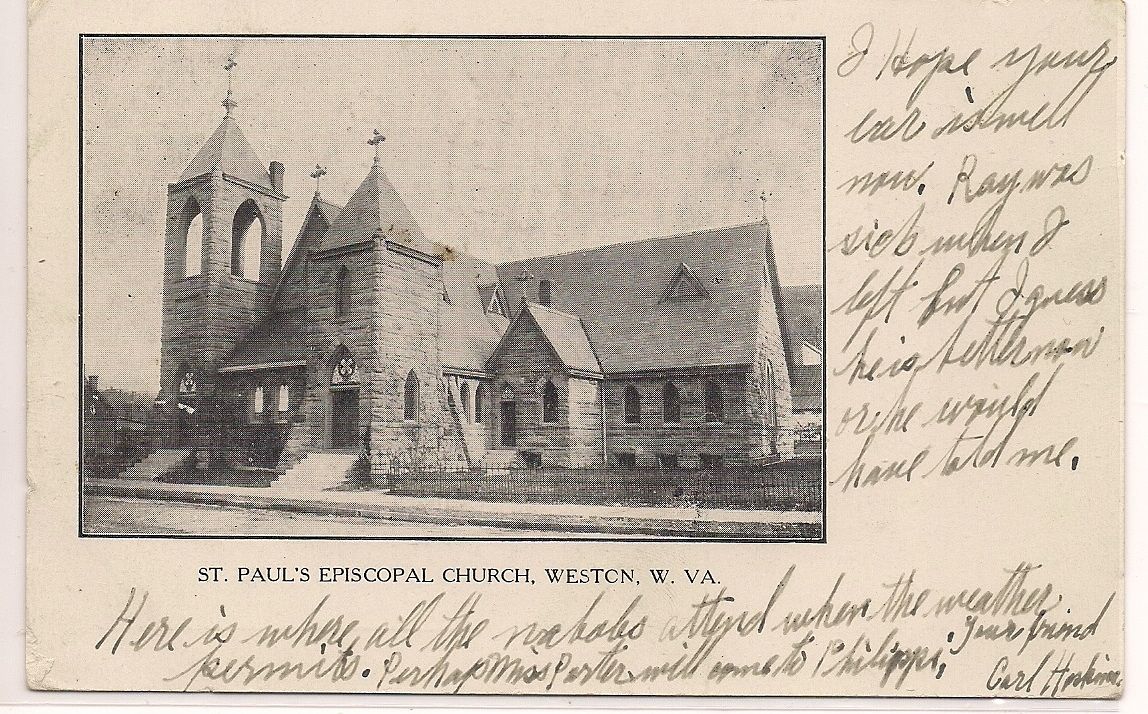 I Hope your
ear is well
now. Ray was
sick when I
left but I guess
he is better now
or he would
have told me.
ST. PAUL'S EPISCOPAL CHURCH, WESTON, W. VA.
Here is where all the nabobs attend when the weather
permits. Perhaps Miss Porter will come to Philippi.
Your friend
Carl